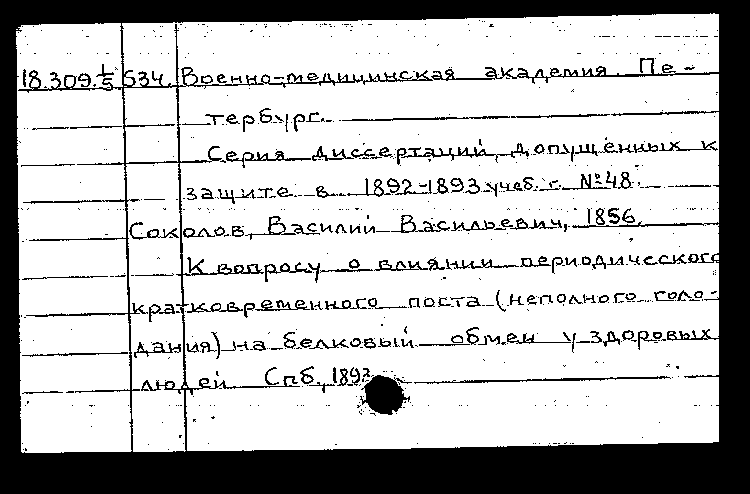 18.309.1/5 534. Военно-медицинская академия. Пе-
тербург.
Серия диссертаций, допущенных к
защите в 1892-1893 учеб. г. №48.
Соколов, Василий Васильевич, 1856.
К вопросу о влиянии периодического
кратковременного поста (неполного голо-
дания) на белковый обмен у здоровых
людей. Спб., 1893